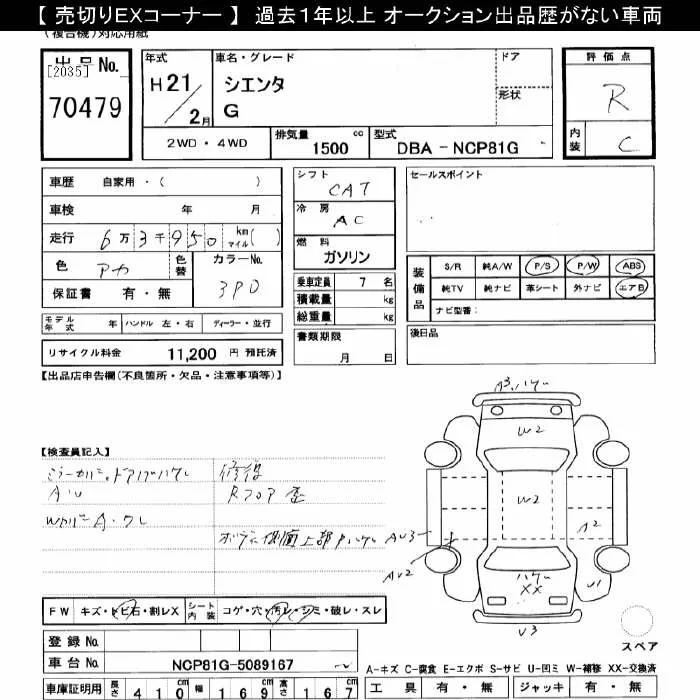 【 売切りEXコーナー 】 過去1年以上 オークション出品歴がない車両
(複合機)対応用紙
出品No.
[2035]
70479
年式
H21/2月
車名・グレード
シエンタ
G
ドア
形状
評価点
R
内装
C
2WD・4WD
排気量 1500 cc
型式 DBA - NCP81G
車歴 自家用・( )
車検 年 月
走行 6万3千950 km マイル( )
色 アカ 色替 カラーNo. 3P0
保証書 有・無
シフト CAT
冷房 AC
燃料 ガソリン
乗車定員 7 名
積載量 kg
総重量 kg
セールスポイント
装備品
S/R 純A/W P/S P/W ABS
純TV 純ナビ 革シート 外ナビ エアB
ナビ型番:
モデル年式 年 ハンドル 左・右 ディーラー・並行
リサイクル料金 11,200 円 預託済
書類期限 月 日
後日品
【出品店申告欄(不良箇所・欠品・注意事項等)】
【検査員記入】
ミラーカバー、ドアノブハケル
A・U
Wカバー A・ワレ
修復
Rフロア 歪
ボディ側面上部Pハゲ
A3、ハゲ
W2
W2
AU3
AU2
A2
ハゲ
XX
U1
U3
スペア
FW キズ・トビ石・割レX
シート内装 コゲ・穴・汚レ・シミ・破レ・スレ
登録No.
車台No. NCP81G-5089167
車庫証明用 長さ 410 幅 169 高さ 167
A-キズ C-腐食 E-エクボ S-サビ U-凹ミ W-補修 XX-交換済
工具 有・無 ジャッキ 有・無